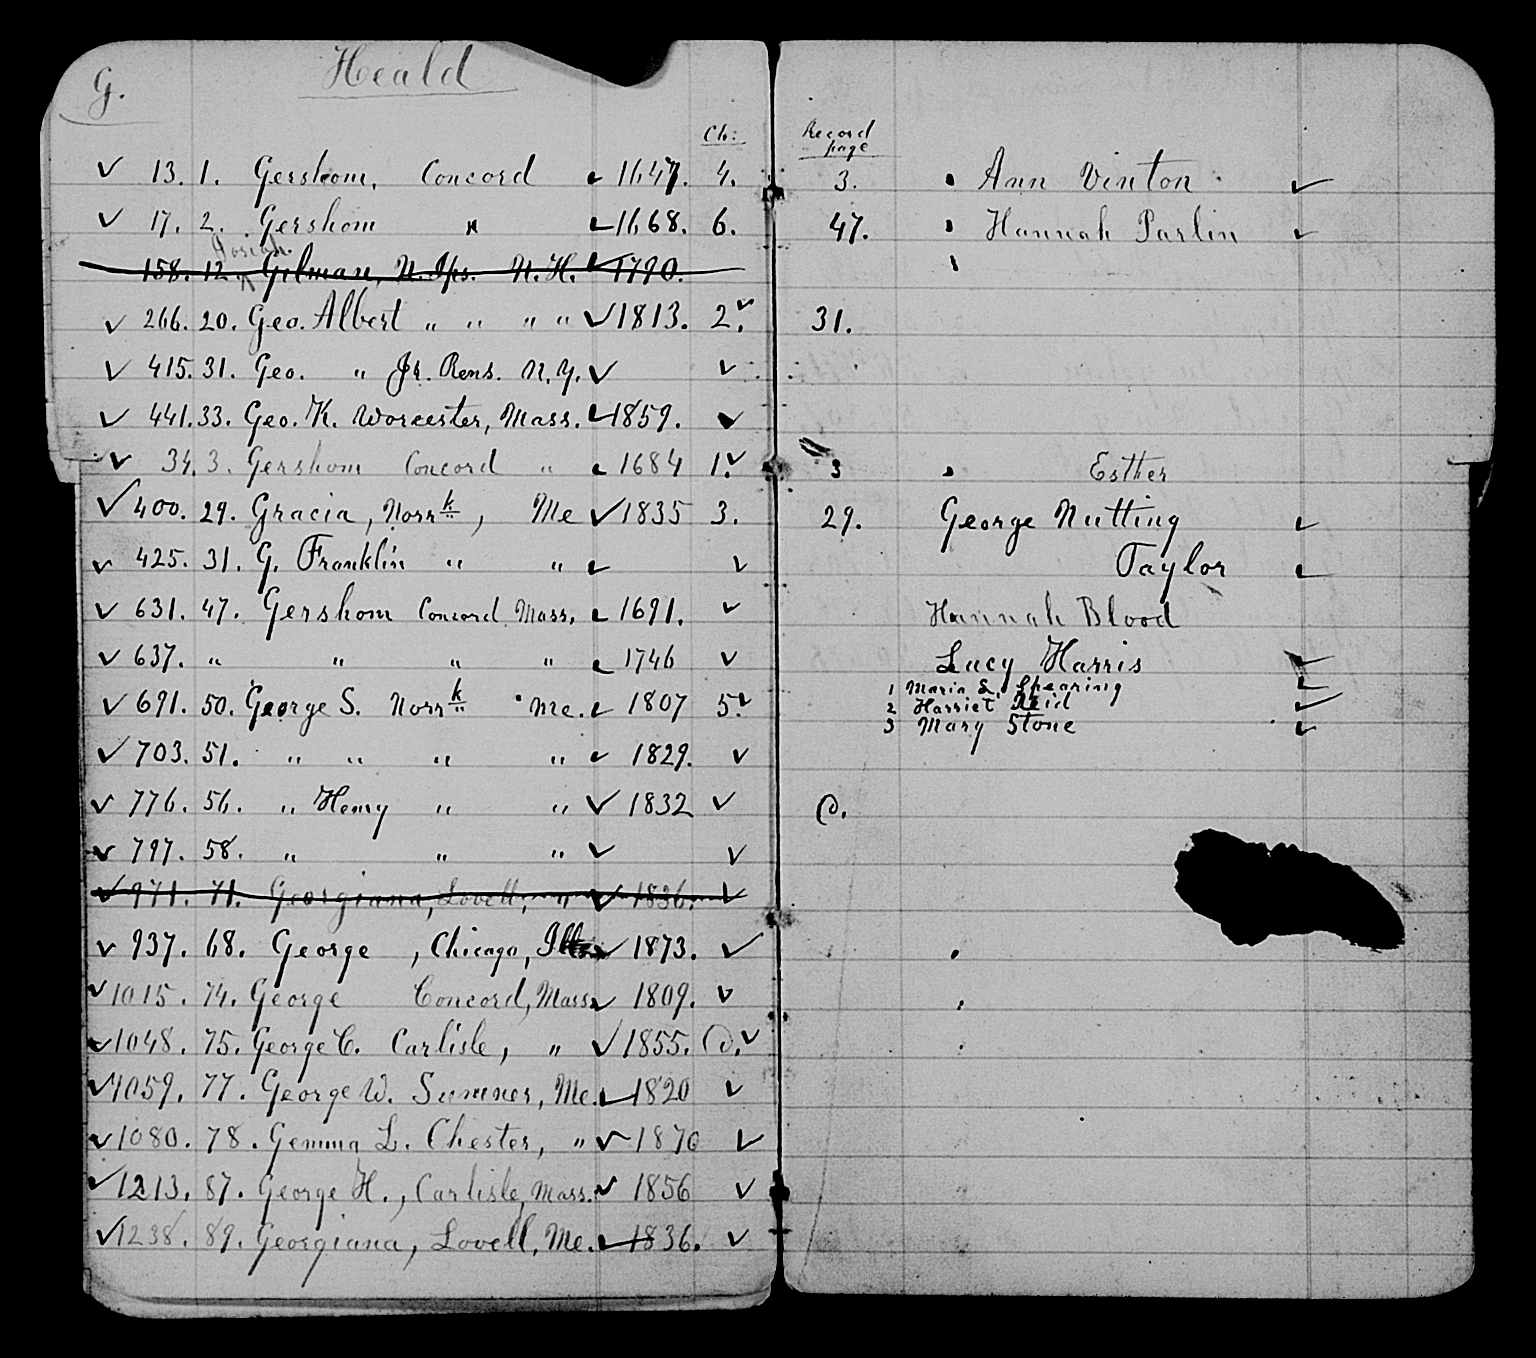 G. Heald
Ch: Record page
✓ 13. 1. Gershom, Concord ✓ 1647. 4. 3. Ann Vinton ✓
✓ 17. 2. Gershom " ✓ 1668. 6. 47. Hannah Parlin ✓
Josiah.
158. 12. Gilman, N. Ips. N.H. ✓ 1790.
✓ 266. 20. Geo. Albert " " " " ✓ 1813. 2. ✓ 31.
✓ 415. 31. Geo. " Jr. Rens. N.Y. ✓ ✓
✓ 441. 33. Geo. K. Worcester, Mass. ✓ 1859. ✓
✓ 34. 3. Gershom Concord " ✓ 1684 1. ✓ 3 Esther
✓ 400. 29. Gracia, Norrk, Me ✓ 1835 3. 29. George Nutting ✓
✓ 425. 31. G. Franklin " " ✓ ✓ Taylor ✓
✓ 631. 47. Gershom Concord Mass. ✓ 1691. ✓ Hannah Blood
✓ 637. " " " " ✓ 1746 ✓ Lucy Harris ✓
1 Maria L. Spearing ✓
✓ 691. 50. George S. Norrk " Me. ✓ 1807 5. ✓ 2 Harriet Reid ✓
3 Mary Stone ✓
✓ 703. 51. " " " " ✓ 1829. ✓
✓ 776. 56. " Henry " " ✓ 1832 ✓ @.
✓ 797. 58. " " " ✓ ✓
✓ 971. 71. Georgiana, Lovell, " ✓ 1836. ✓
✓ 937. 68. George , Chicago, Ills ✓ 1873. ✓
✓ 1015. 74. George Concord, Mass ✓ 1809. ✓
✓ 1048. 75. George C. Carlisle, " ✓ 1855. @. ✓
✓ 1059. 77. George W. Sumner, Me. ✓ 1820 ✓
✓ 1080. 78. Gemma L. Chester, " ✓ 1870 ✓
✓ 1213. 87. George H., Carlisle, Mass. ✓ 1856 ✓
✓ 1238. 89. Georgiana, Lovell, Me. ✓ 1836. ✓